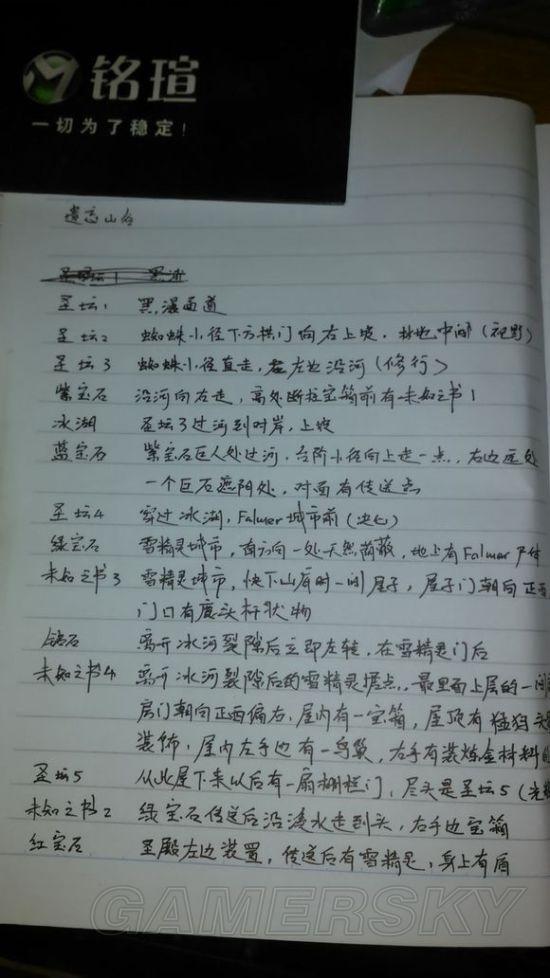 铭瑄
一切为了稳定!
遗忘山谷
圣坛1 黑瀑面道
圣坛2 蜘蛛小径下方拱门向右上坡,林地中间(视野)
圣坛3 蜘蛛小径直走,左边沿河(修行)
紫宝石 沿河向右走,高处断柱宝箱前有未知之书1
冰湖 圣坛3过河到对岸,上坡
蓝宝石 紫宝石巨人处过河,台阶小径向上走一点,右边远处
一个巨石遮阴处,对面有传送点
圣坛4 穿过冰湖,Falmer城市前(决心)
绿宝石 雪精灵城市,南方向一处天然荫蔽,地上有Falmer尸体
未知之书3 雪精灵城市,快下山谷时一间屋子,屋子门朝向正西
门口有鹿头杆状物
钻石 离开冰河裂隙后立即左转,在雪精灵门后
未知之书4 离开冰河裂隙后的雪精灵据点,最里面上层的一间
房门朝向正西偏右,屋内有一宝箱,屋顶有猛犸头
装饰,屋内左手边有一鸟巢,右手有装炼金材料的
圣坛5 从此屋下来以后有一扇栅栏门,尽头是圣坛5(光
未知之书2 绿宝石传送后沿流水走到头,右手边宝箱
红宝石 圣殿左边装置,传送后有雪精灵,身上有盾
GAMERSKY